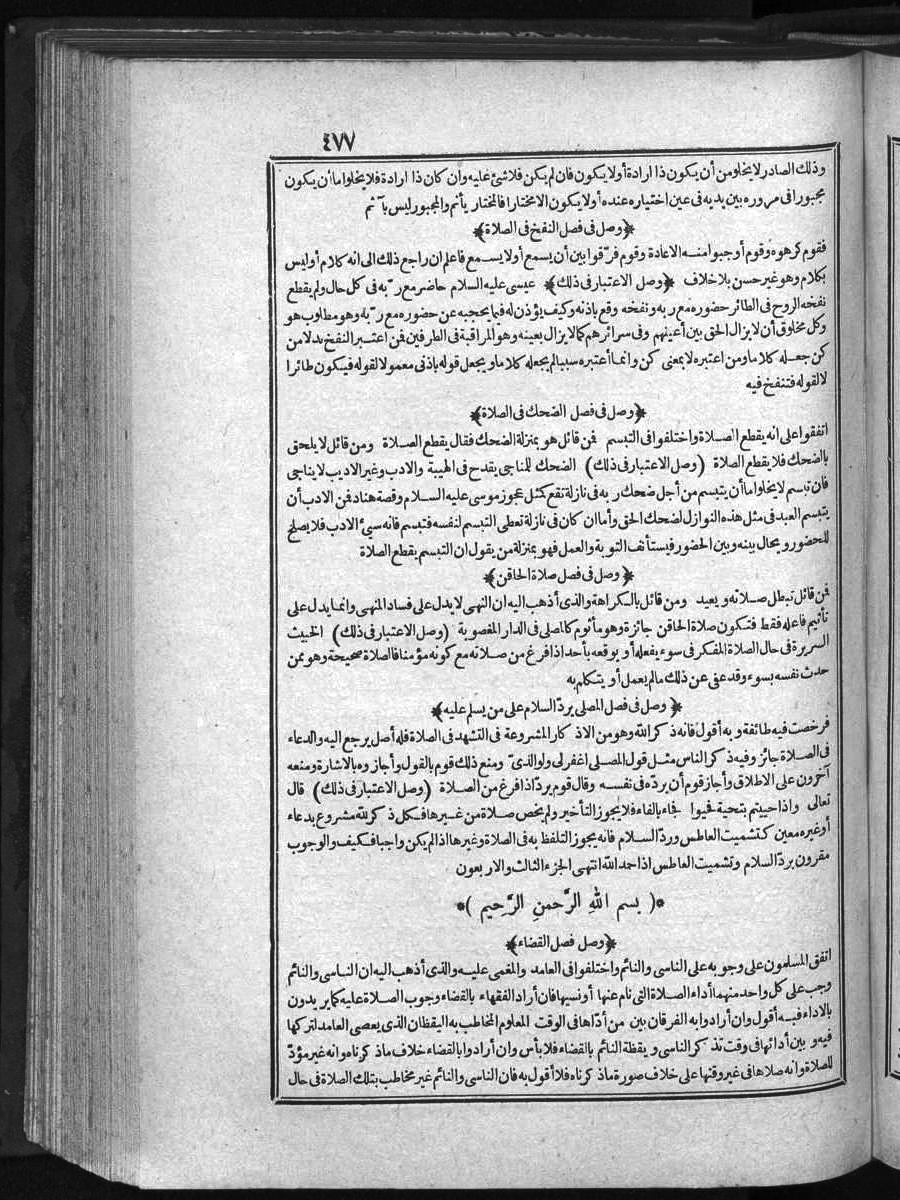 ٤٧٧
وذلك الصادر لا يخلو من أن يكون ذا ارادة أولا يكون فان لم يكن فلا شئ عليه وان كان ذا ارادة فلا يخلو اما أن يكون
مجبورا فى مروره بين يديه فى عين اختياره عنده أولا يكون الا مختارا فالمختار يأثم والمجبور ليس بآثم
﴿وصل فى فصل النفخ فى الصلاة﴾
فقوم كرهوه وقوم أوجبوا منه الاعادة وقوم فرّقوا بين أن يسمع أولا يسمع فاعلم ان راجع ذلك الى انه كلام أوليس
بكلام وهو غير حسن بلا خلاف ﴿وصل الاعتبار فى ذلك﴾ عيسى عليه السلام حاضر مع ربه فى كل حال ولم يقطع
نفخه الروح فى الطائر حضوره مع ربه ونفخه وقع باذنه وكيف يؤذن له فيما يحجبه عن حضوره مع ربه وهو مطلوب هو
وكل مخلوق أن لا يزال الحق بين أعينهم وفى سرائرهم كما لا يزال بعينه وهو المراقبة فى الطرفين فمن اعتبر النفخ بدلا من
كن جعله كلاما ومن اعتبره لا بمعنى كن وانما أعتبره سببا لم يجعله كلاما ويجعل قوله باذنى معمولا لقوله فيكون طائرا
لا لقوله فتنفخ فيه
﴿وصل فى فصل الضحك فى الصلاة﴾
اتفقوا على انه يقطع الصلاة واختلفوا فى التبسم فمن قائل هو بمنزلة الضحك فقال يقطع الصلاة ومن قائل لا يلحق
بالضحك فلا يقطع الصلاة (وصل الاعتبار فى ذلك) الضحك للمناجى يقدح فى الهيبة والادب وغير الاديب لا يناجى
فان تبسم لا يخلو اما أن يتبسم من أجل ضحك ربه فى نازلة تقع كمثل عجوز موسى عليه السلام وقصة هناد فمن الادب أن
يتبسم العبد فى مثل هذه النوازل لضحك الحق وأما ان كان فى نازلة تعطى التبسم لنفسه فتبسم فانه سيئ الادب فلا يصلح
للحضور ويحال بينه وبين الحضور فيستأنف التوبة والعمل فهو بمنزلة من يقول ان التبسم يقطع الصلاة
﴿وصل فى فصل صلاة الحاقن﴾
فمن قائل تبطل صلاته ويعيد ومن قائل بالكراهة والذى أذهب اليه ان النهى لا يدل على فساد المنهى وانما يدل على
تأثيم فاعله فقط فتكون صلاة الحاقن جائزة وهو مأثوم كالمصلى فى الدار المغصوبة (وصل الاعتبار فى ذلك) الخبيث
السريرة فى حال الصلاة المفكر فى سوء يفعله أو يوقعه بأحد اذا فرغ من صلاته مع كونه مؤمنا فالصلاة صحيحة وهو ممن
حدث نفسه بسوء وقد عفى عن ذلك ما لم يعمل أو يتكلم به
﴿وصل فى فصل المصلى يردّ السلام على من يسلم عليه﴾
فرخصت فيه طائفة وبه أقول فانه ذكر الله وهو من الاذكار المشروعة فى التشهد فى الصلاة فله أصل يرجع اليه والدعاء
فى الصلاة جائز وفيه ذكر الناس مثل قول المصلى اغفر لى ولوالدىّ ومنع ذلك قوم بالقول وأجازوه بالاشارة ومنعه
آخرون على الاطلاق وأجاز قوم أن يردّه فى نفسه وقال قوم يردّ اذا فرغ من الصلاة (وصل الاعتبار فى ذلك) قال
تعالى واذا حييتم بتحية فحيوا فجاء بالفاء فلا يجوز التأخير ولم يخص صلاة من غيرها فكل ذكر لله مشروع بدعاء
أو غيره معين كتشميت العاطس وردّ السلام فانه يجوز التلفظ به فى الصلاة وغيرها اذا لم يكن واجبا فكيف والوجوب
مقرون بردّ السلام وتشميت العاطس اذا حمد الله انتهى الجزء الثالث والاربعون
*( بسم الله الرَّحمنِ الرَّحِيم )*
﴿وصل فصل القضاء﴾
اتفق المسلمون على وجوبه على الناسى والنائم واختلفوا فى العامد والمغمى عليه والذى أذهب اليه ان الناسى والنائم
وجب على كل واحد منهما أداء الصلاة التى نام عنها أو نسيها فان أراد الفقهاء بالقضاء وجوب الصلاة عليه كما يريدون
بالاداء فبه أقول وان أرادوا به الفرقان بين من أدّاها فى الوقت المعلوم المخاطب به اليقظان الذى يعصى العامد لتركها
فيه وبين أدائها فى وقت تذكر الناسى ويقظة النائم بالقضاء فلا بأس وان أرادوا بالقضاء خلاف ما ذكرناه وانه غير مؤدّ
للصلاة وانه صلاها فى غير وقتها على خلاف صورة ما ذكرناه فلا أقول به فان الناسى والنائم غير مخاطب بتلك الصلاة فى حال